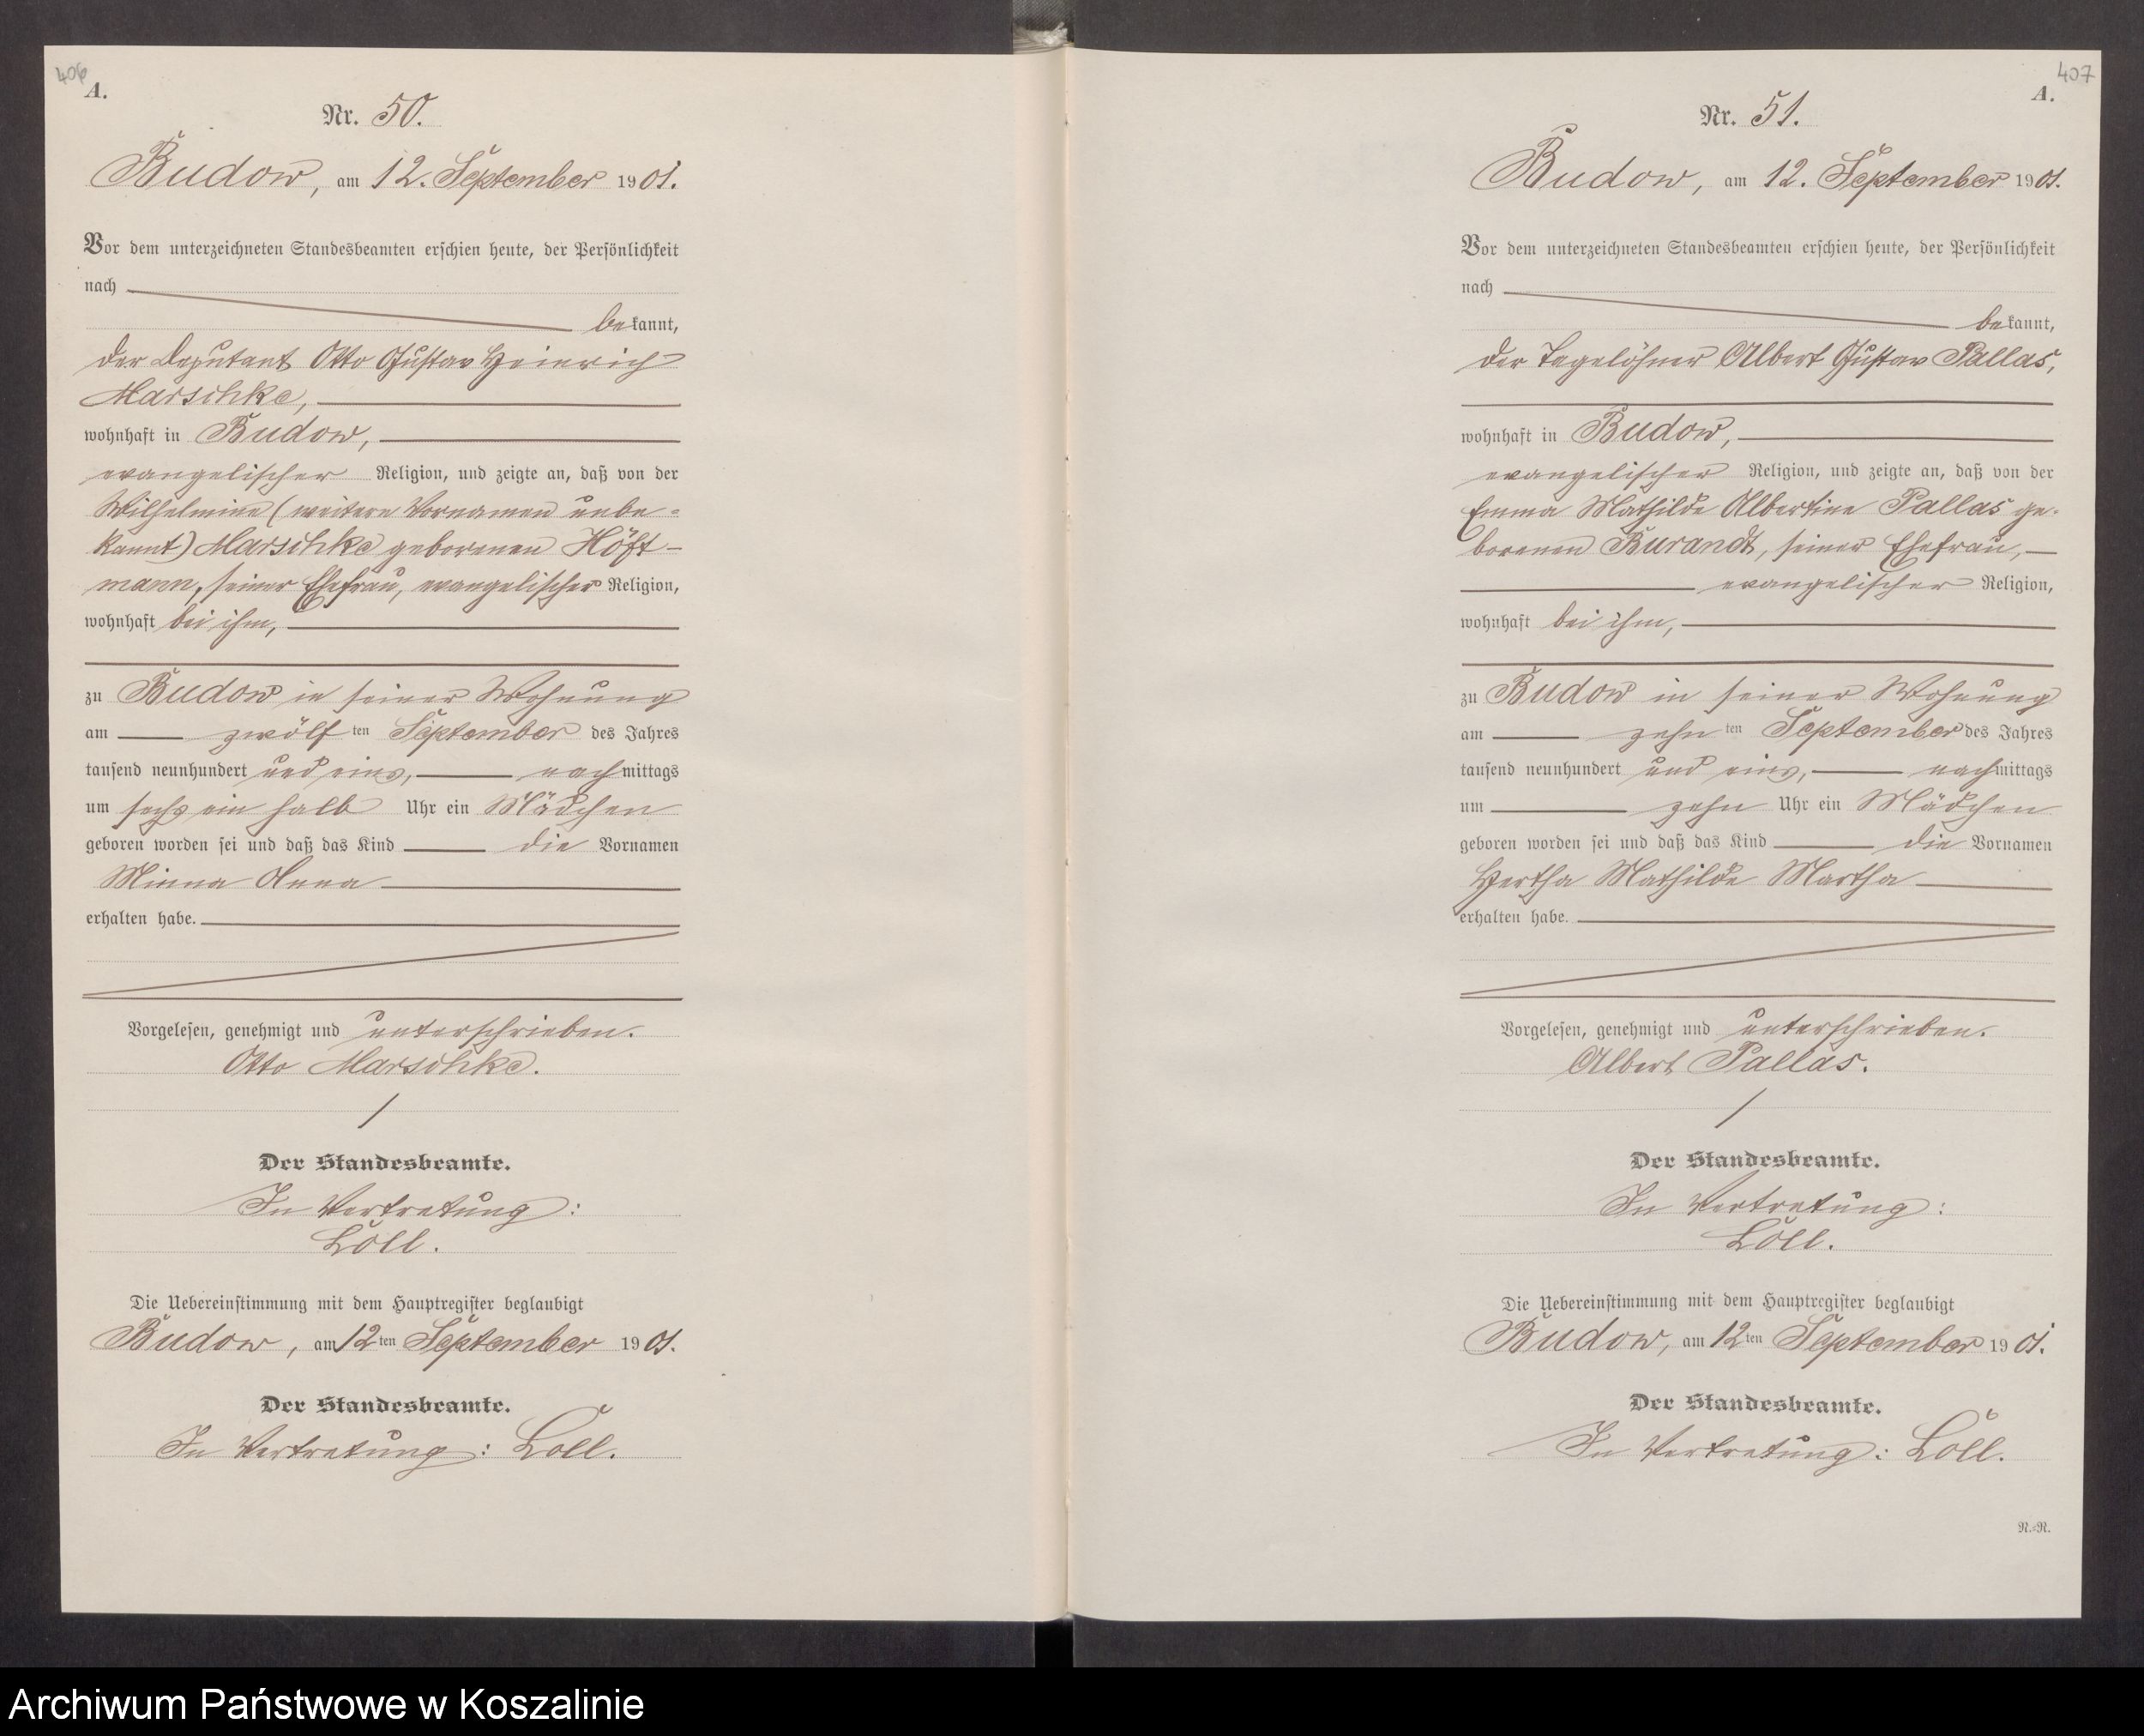 406
A.
Nr. 50.
Budow, am 12. September 1901.
Vor dem unterzeichneten Standesbeamten erschien heute, der Persönlichkeit
nach
bekannt,
der Deputant Otto Gustav Heinrich
Marschke,
wohnhaft in Budow,
evangelischer Religion, und zeigte an, daß von der
Wilhelmine (weitere Vornamen unbe-
kannt) Marschke geborenen Höft-
mann, seiner Ehefrau, evangelischer Religion,
wohnhaft bei ihm,
zu Budow in seiner Wohnung
am zwölf ten September des Jahres
tausend neunhundert und eins, nachmittags
um sechs ein halb Uhr ein Mädchen
geboren worden sei und daß das Kind die Vornamen
Minna Anna
erhalten habe.
Vorgelesen, genehmigt und unterschrieben.
Otto Marschke.
Der Standesbeamte.
In Vertretung:
Löll.
Die Uebereinstimmung mit dem Hauptregister beglaubigt
Budow, am 12ten September 1901.
Der Standesbeamte.
In Vertretung: Löll.
407
A.
Nr. 51.
Budow, am 12. September 1901.
Vor dem unterzeichneten Standesbeamten erschien heute, der Persönlichkeit
nach
bekannt,
der Tagelöhner Albert Gustav Pallas,
wohnhaft in Budow,
evangelischer Religion, und zeigte an, daß von der
Emma Mathilde Albertine Pallas ge-
borenen Burandt, seiner Ehefrau,
evangelischer Religion,
wohnhaft bei ihm,
zu Budow in seiner Wohnung
am zehn ten September des Jahres
tausend neunhundert und eins, nachmittags
um zehn Uhr ein Mädchen
geboren worden sei und daß das Kind die Vornamen
Hertha Mathilde Martha
erhalten habe.
Vorgelesen, genehmigt und unterschrieben.
Albert Pallas.
Der Standesbeamte.
In Vertretung:
Löll.
Die Uebereinstimmung mit dem Hauptregister beglaubigt
Budow, am 12ten September 1901.
Der Standesbeamte.
In Vertretung: Löll.
N.-N.
Archiwum Państwowe w Koszalinie